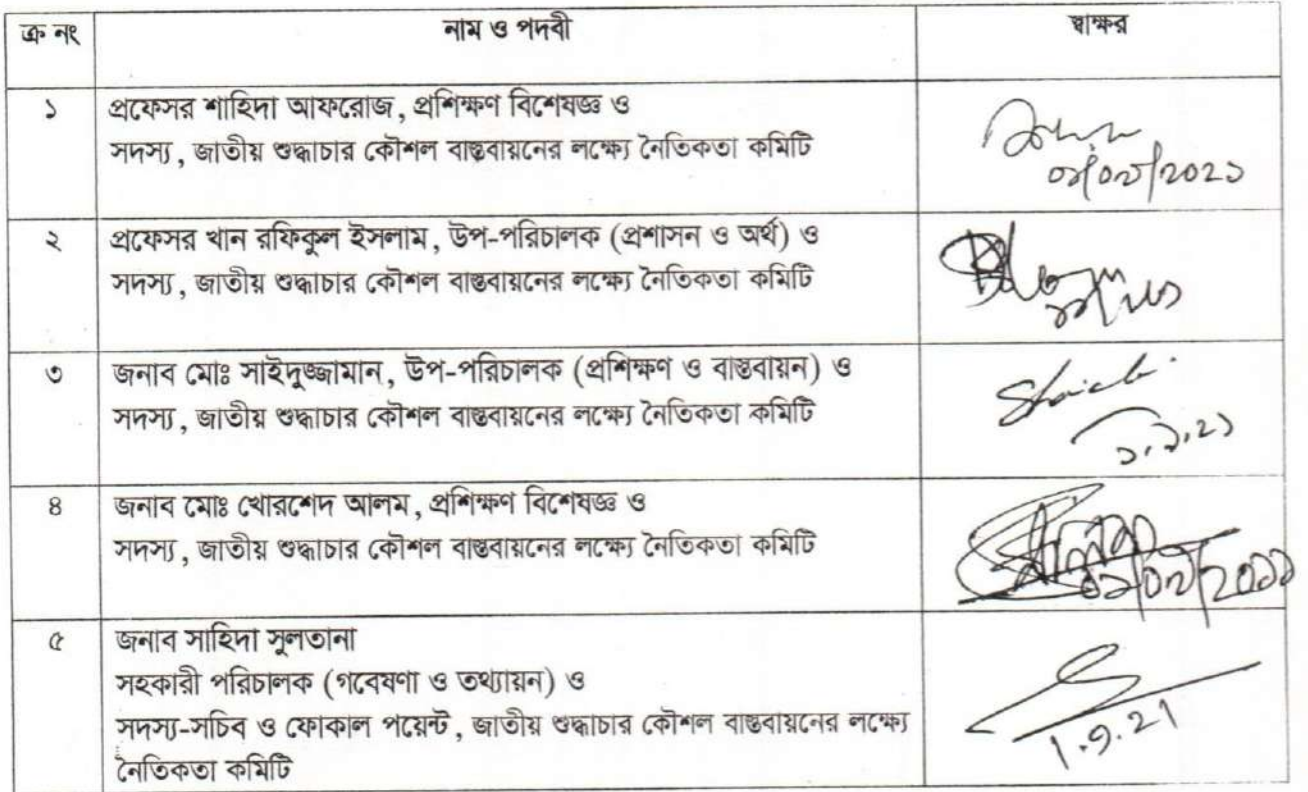 ক্র নং
নাম ও পদবী
স্বাক্ষর
১
প্রফেসর শাহিদা আফরোজ, প্রশিক্ষণ বিশেষজ্ঞ ও
সদস্য, জাতীয় শুদ্ধাচার কৌশল বাস্তবায়নের লক্ষ্যে নৈতিকতা কমিটি
২
প্রফেসর খান রফিকুল ইসলাম, উপ-পরিচালক (প্রশাসন ও অর্থ) ও
সদস্য, জাতীয় শুদ্ধাচার কৌশল বাস্তবায়নের লক্ষ্যে নৈতিকতা কমিটি
৩
জনাব মোঃ সাইদুজ্জামান, উপ-পরিচালক (প্রশিক্ষণ ও বাস্তবায়ন) ও
সদস্য, জাতীয় শুদ্ধাচার কৌশল বাস্তবায়নের লক্ষ্যে নৈতিকতা কমিটি
৪
জনাব মোঃ খোরশেদ আলম, প্রশিক্ষণ বিশেষজ্ঞ ও
সদস্য, জাতীয় শুদ্ধাচার কৌশল বাস্তবায়নের লক্ষ্যে নৈতিকতা কমিটি
৫
জনাব সাহিদা সুলতানা
সহকারী পরিচালক (গবেষণা ও তথ্যায়ন) ও
সদস্য-সচিব ও ফোকাল পয়েন্ট, জাতীয় শুদ্ধাচার কৌশল বাস্তবায়নের লক্ষ্যে
নৈতিকতা কমিটি
1.9.21